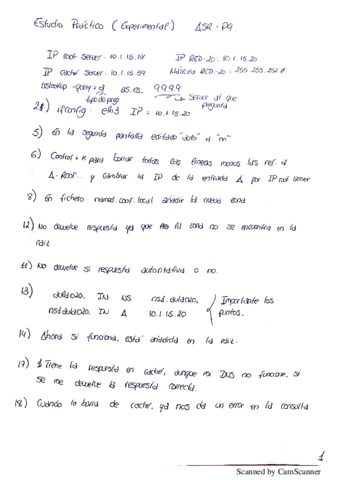 Estudio Práctico (Experimental) ASR - P4
IP root server: 10.1.15.58 IP RED-20: 10.1.15.20
IP caché server: 10.1.15.59 Máscara RED-20: 255.255.252.0
nslookup -query= us.es. 9.9.9.9
tipo de preg. Server al que preguntará
2) ifconfig: eth3 IP = 10.1.15.20
5) En la segunda pantalla editado "auto" a "no"
6) Control + K para borrar todas las líneas menos las ref. a
A-Root... y cambiar la IP de la entrada A por IP root server
8) En fichero named.conf.local añadir la nueva zona
12) No devuelve respuesta ya que la zona no se encuentra en la
raíz
11) No devuelve si respuesta autoritativa o no.
13) aula020. IN NS ns1.aula020. Importante los
ns1.aula020. IN A 10.1.15.20 puntos.
14) Ahora si funciona, está añadida en la raíz.
17) Tiene la respuesta en caché, aunque mi DNS no funcione, si
se me devuelve la respuesta correcta.
18) Cuando lo borra de caché, ya nos da un error en la consulta
1
Scanned by CamScanner